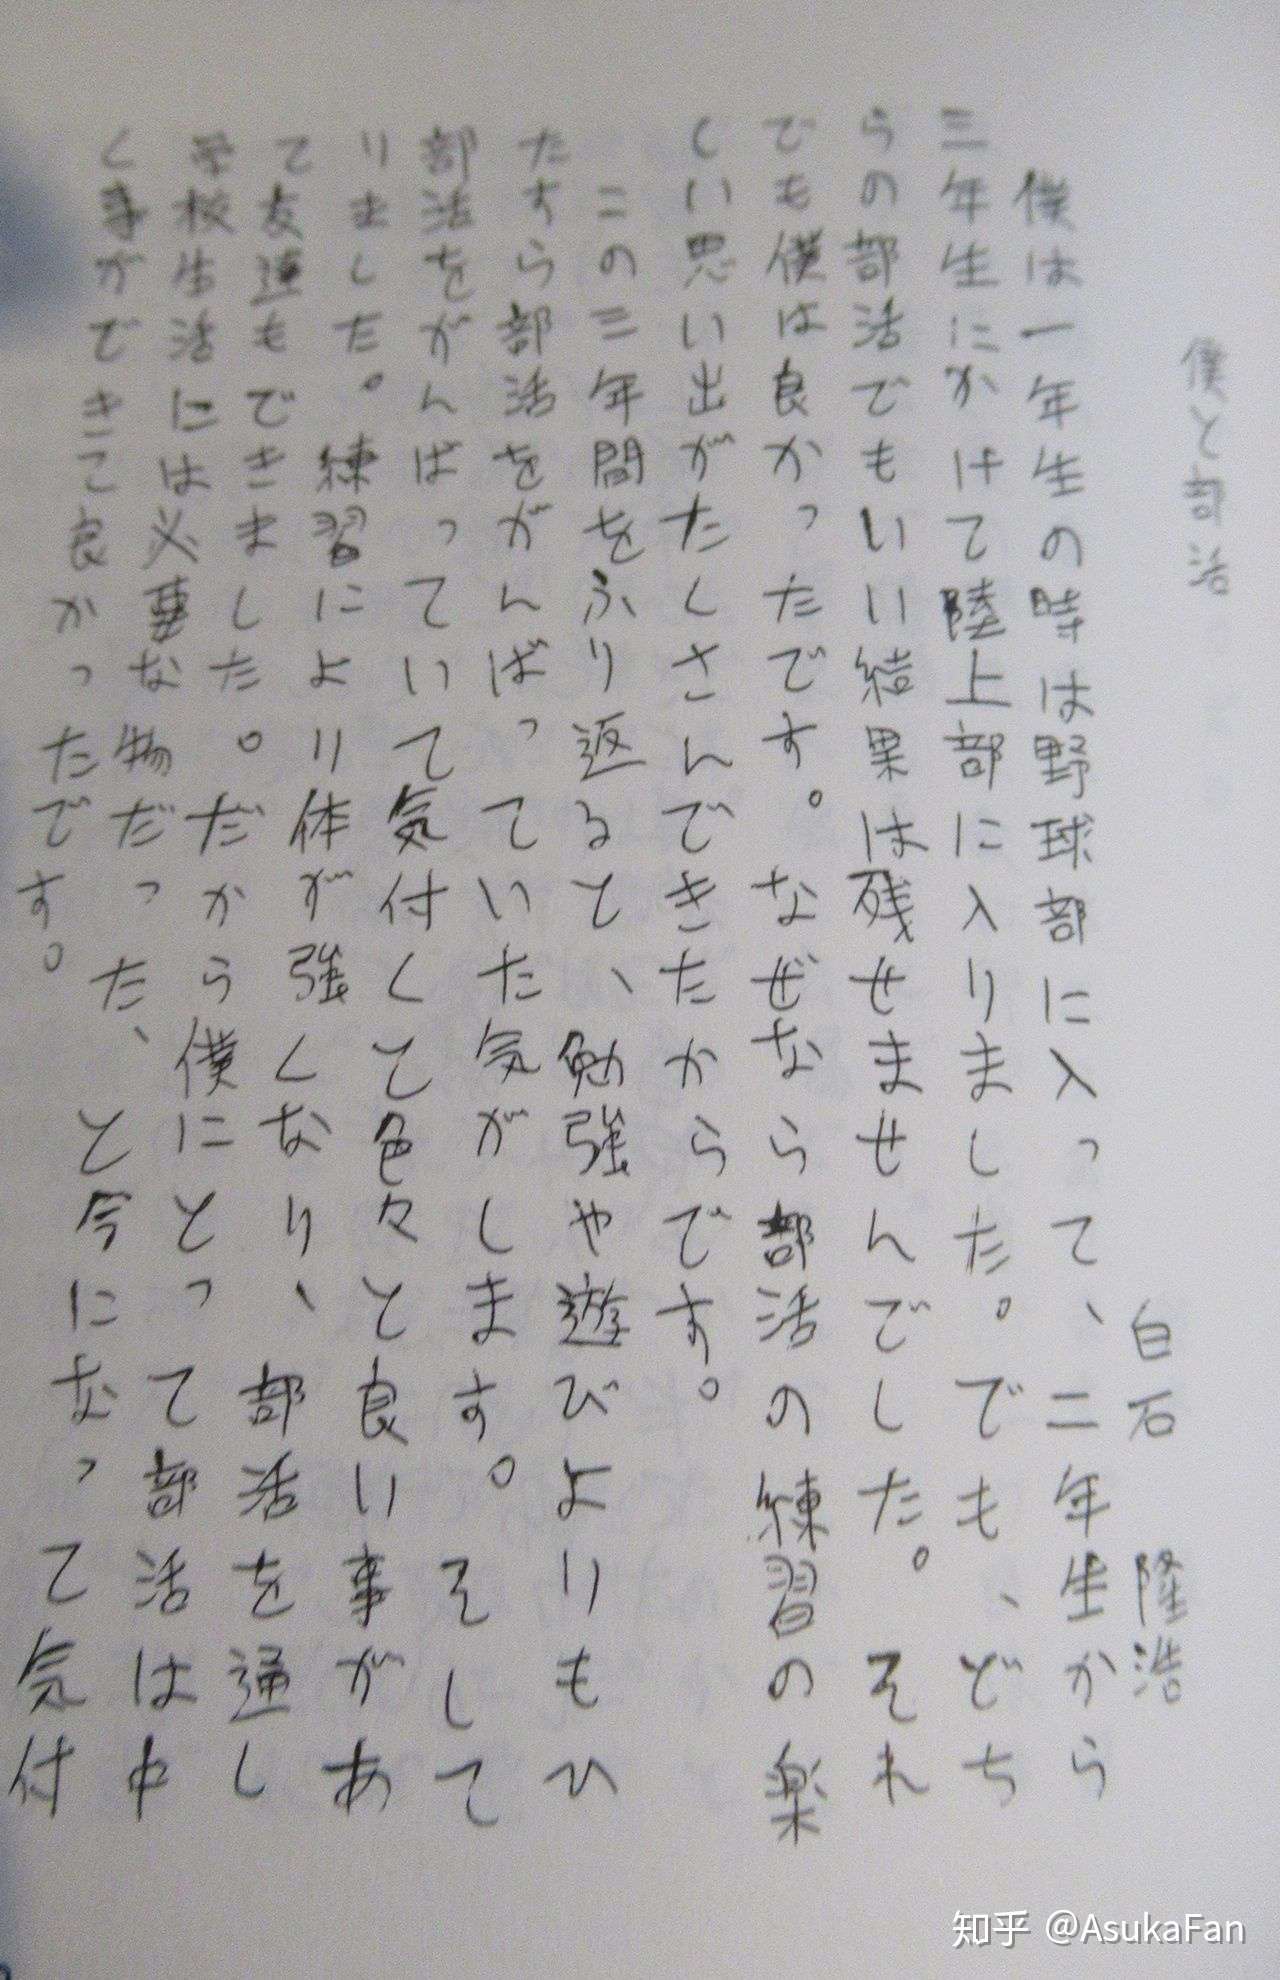 僕と部活
白石 隆浩
僕は一年生の時は野球部に入って、二年生から
三年生にかけて陸上部に入りました。でも、どち
らの部活でもいい結果は残せませんでした。それ
でも僕は良かったです。なぜなら部活の練習の楽
しい思い出がたくさんできたからです。
この三年間をふり返ると、勉強や遊びよりもひ
たすら部活をがんばっていた気がします。そして
部活をがんばっていて気付くと色々と良い事があ
りました。練習により体が強くなり、部活を通し
て友達もできました。だから僕にとって部活は中
学校生活には必要な物だった、と今になって気付
く事ができて良かったです。
知乎 @AsukaFan